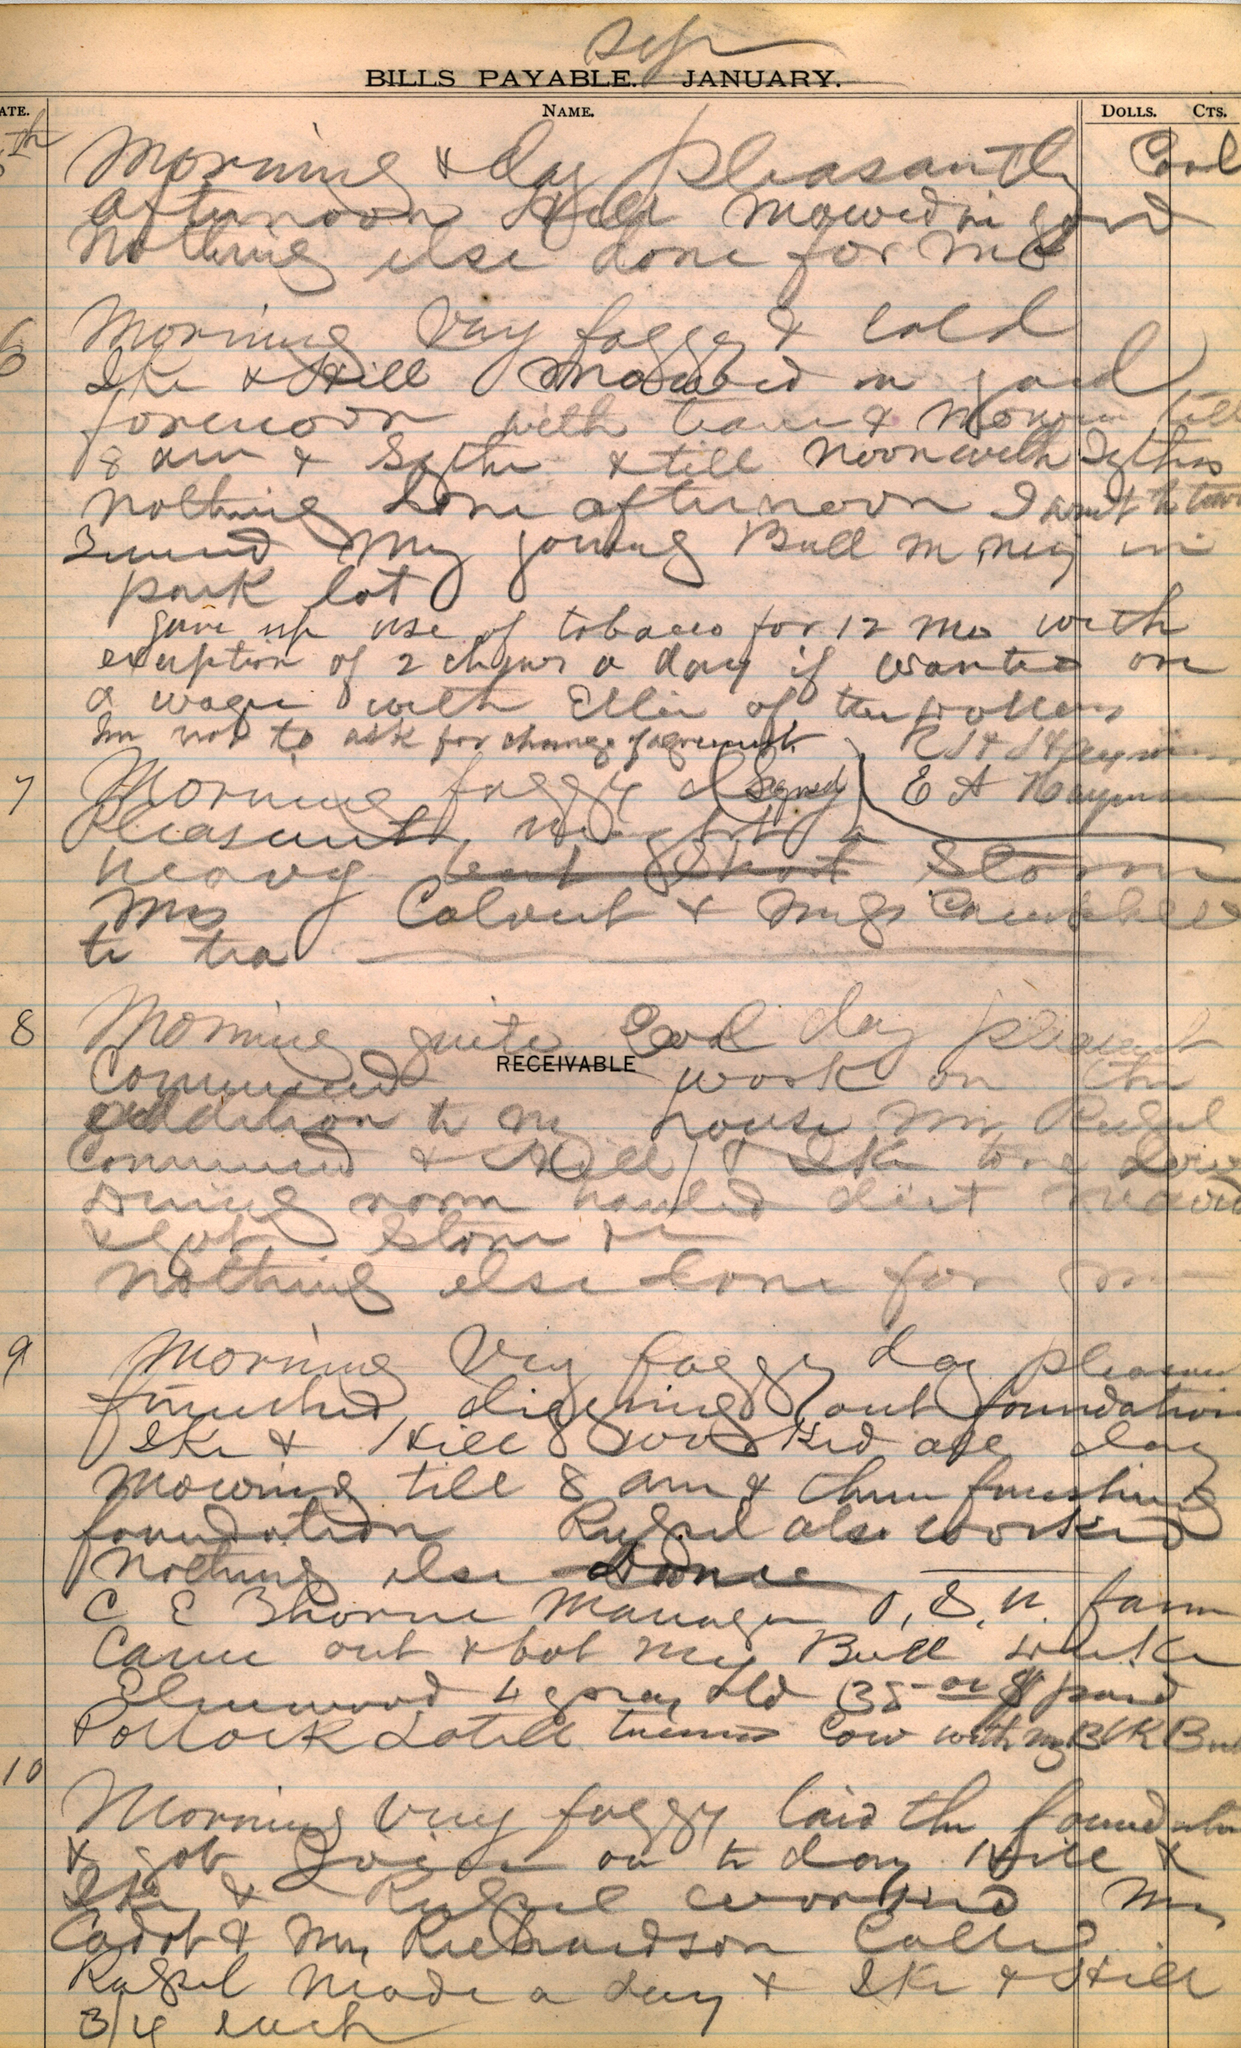 Sep
BILLS PAYABLE. JANUARY.
ATE. NAME. DOLLS. CTS.
5th Morning & day pleasantly Cool
afternoon Hill Mowed in yard
Nothing else done for me
6 Morning Very foggy & cold
Ike & Hill Mowed in yard
forenoon with team & Mower till
8 am & Sythe & till Noon with Sythes
Nothing done afternoon I went to town
Turned My young Bull in
park lot
gave up use of tobacco for 12 mo with
exception of 2 chews a day if wanted on
a wager with Ellie of ten dollars
Im not to ask for change of agreement R H Hayman
7 Morning foggy (Signed) E A Hayman
Pleasant night a
heavy but short Storm
Mrs Calvert & Mrs Campbell
to tea
8 Morning quite Cool day pleasant
RECEIVABLE
Commenced work on the
addition to my house Mr Rufsel
Commenced & Hill & Ike tore down
Dining room hauled dirt
& got Stone &c
Nothing else done for me
9 Morning Very foggy day pleasant
finished digging out foundation
Ike & Hill worked all day
Mowing till 8 am & then finishing
foundation Rufsel also worked
Nothing else Done
C E Thorne Manager O. S. U. farm
Came out & bot my Bull Duke
Elmwood 4 years old 135 00 $ paid
Pollock turned Cow with my Blk Bull
10 Morning Very foggy laid the foundation
& got on to day Hill &
Ike & Rufsel worked Mrs
Cadot & Mrs Richardson Called
Rufsel made a day & Ike & Hill
3/4 each